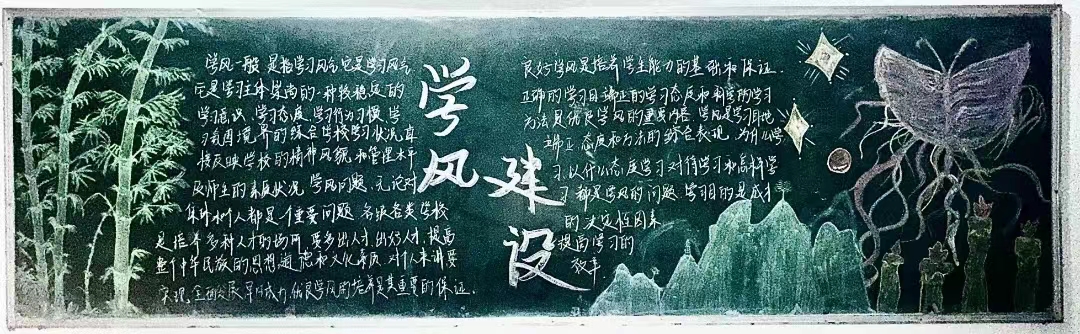 学风一般是指学习风气它是学习风气
它是学习主体架构的一种较稳定的
学习意识、学习态度、学习行为习惯、学
习氛围境界的综合学校学习状况直
接反映学校的精神风貌和管理水平
及师生的素质状况 学风问题,无论对
集体和个人都是个重要问题 各级各类学校
是培养多种人才的场所,要多出人才,出好人才,提高
整个中华民族的思想道德和文化素质 对个人来讲要
实现 发展 优良学风的培养是其重要的保证.
学风
建设
良好学风是培养学生能力的基础和保证.
正确的学习目 端正的学习态度和科学的学习
方法是优良学风的重要内容 学风是学习目地
端正 态度和方法的综合表现 为什么学
习,以什么态度学习对待学习和 科学
习 都是学风的问题 学习目的是成才
的决定性因素
提高学习的
效率